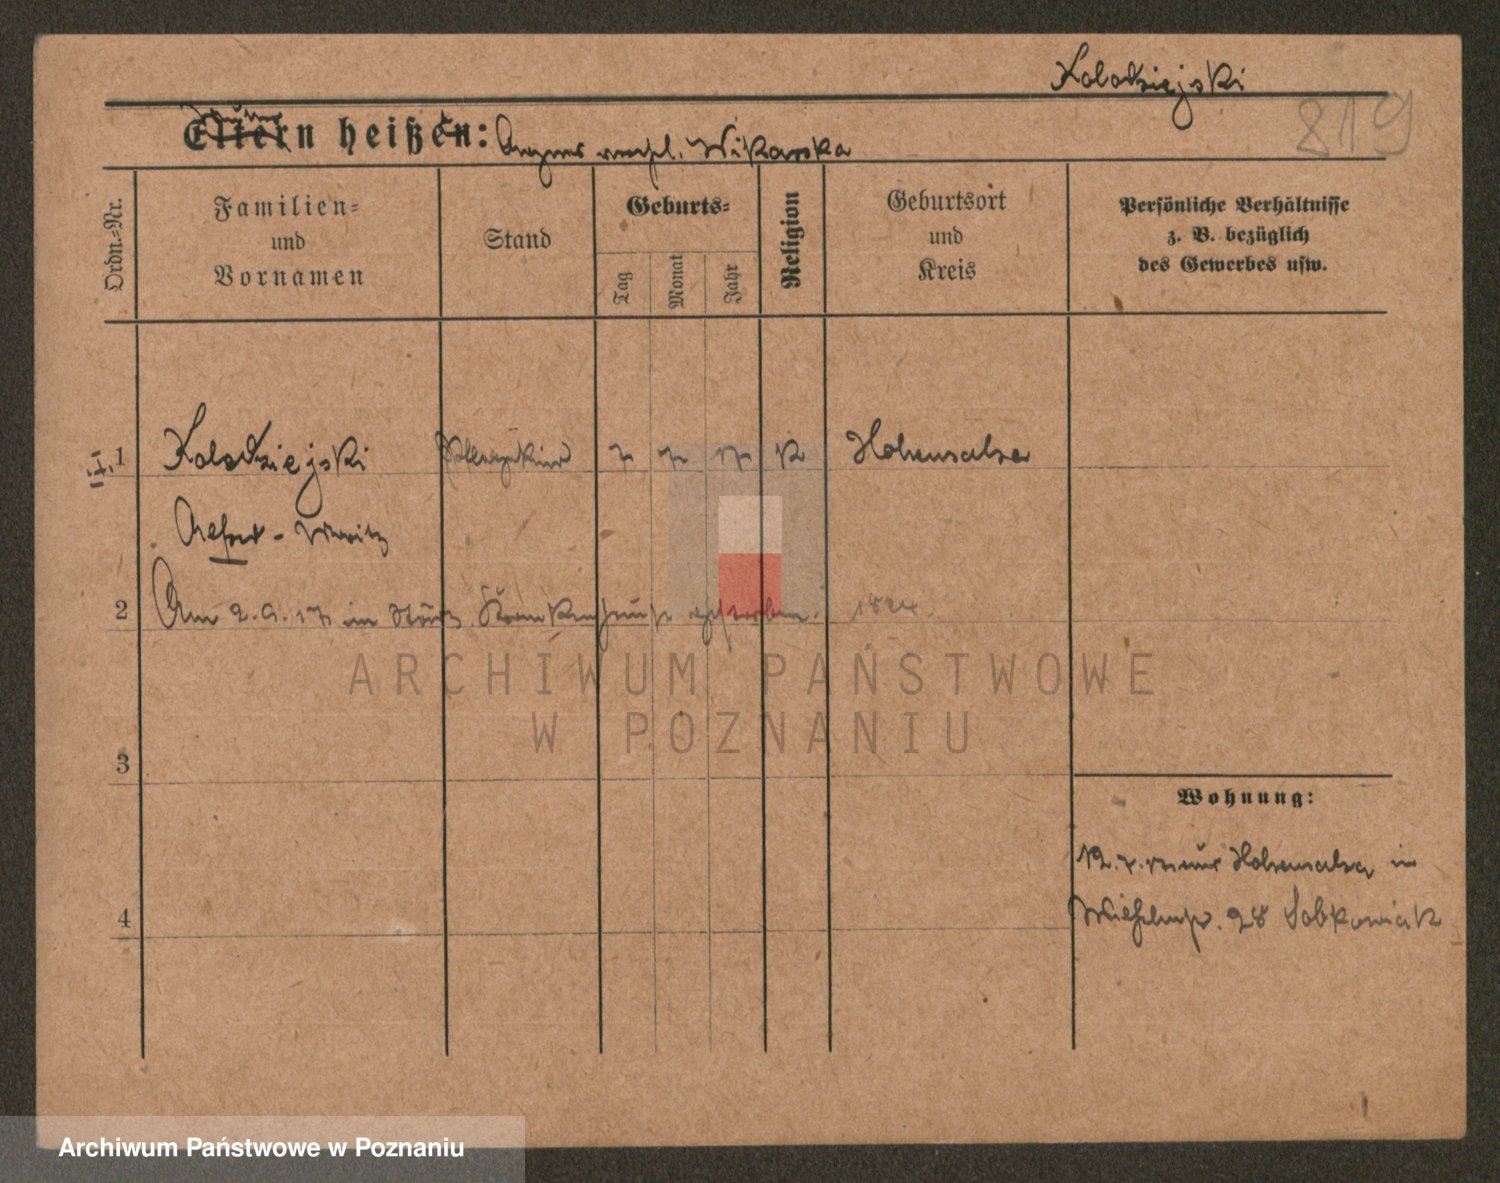 Kolodziejski
819
Eltern heißen: verehel. Wikarska
Ordn.-Nr.
Familien-
und
Vornamen
Stand
Geburts-
Tag
Monat
Jahr
Religion
Geburtsort
und
Kreis
Persönliche Verhältnisse
z. B. bezüglich
des Gewerbes usw.
1 Kolodziejski Pflegekind 7 7 17 K Hohensalza
2 Am 2.9.17 im Krankenhause gestorben.
ARCHIWUM PAŃSTWOWE
W POZNANIU
3
Wohnung:
12.7.17 aus Hohensalza in
4 28 Sobkowiak
Archiwum Państwowe w Poznaniu